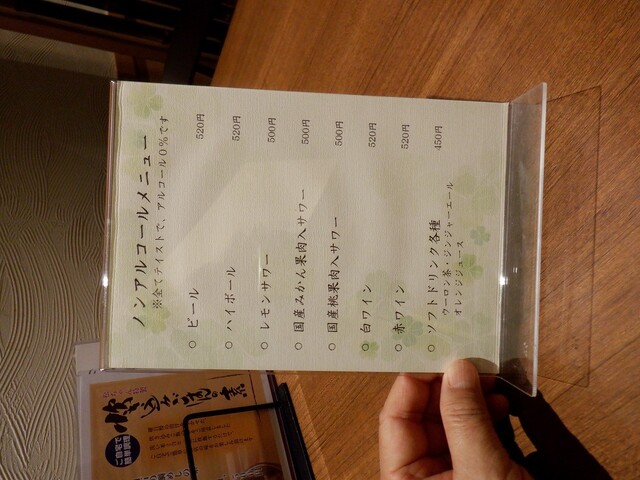 ノンアルコールメニュー
※全てテイストで、アルコール0%です
○ ビール 520円
○ ハイボール 520円
○ レモンサワー 500円
○ 国産みかん果肉入サワー 500円
○ 国産桃果肉入サワー 500円
○ 白ワイン 520円
○ 赤ワイン 520円
○ ソフトドリンク各種 450円
ウーロン茶・ジンジャーエール
オレンジジュース
ご自宅で
簡単調理